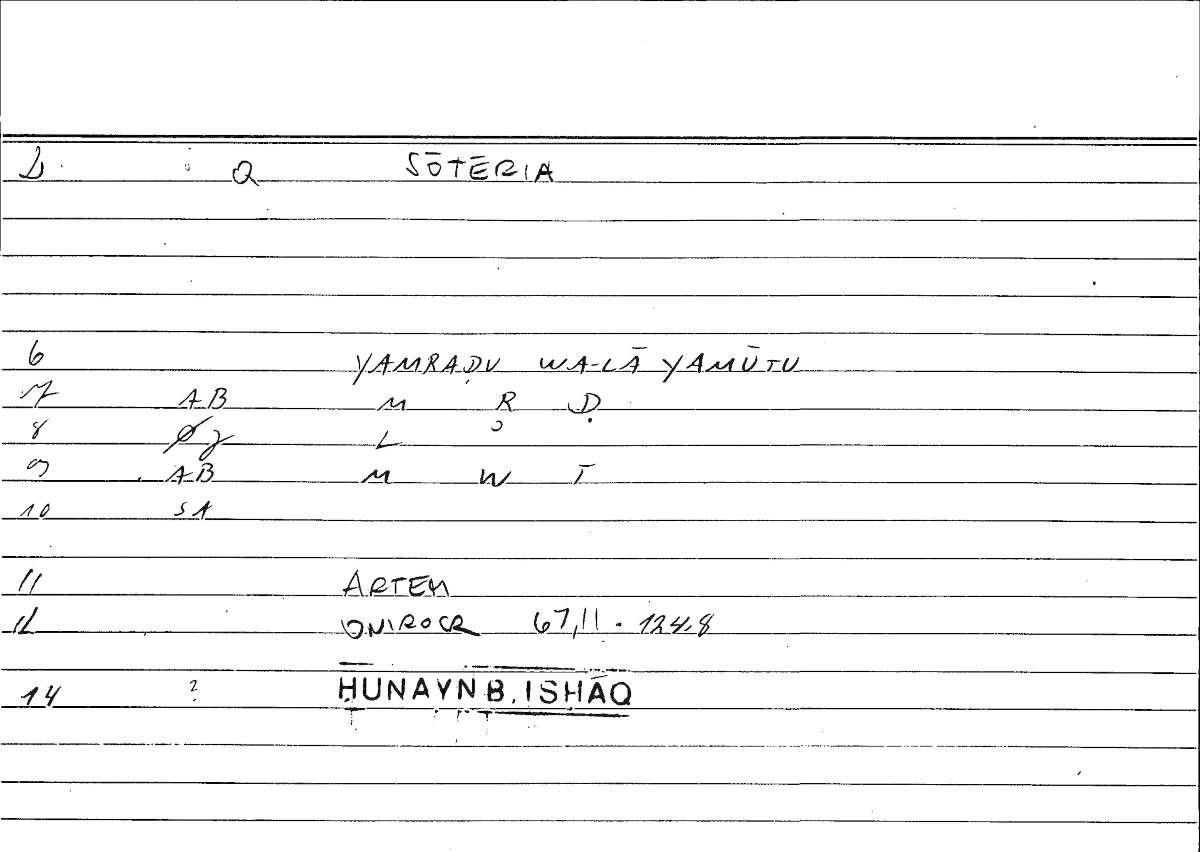 Q SŌTĒRIA
6 YAMRAḌU WA-LĀ YAMŪTU
7 AB M R Ḍ
8 L
9 AB M W T
10 SA
11 ARTEM
12 ONIROCR 67,11 · 124.8
14 ? ḤUNAYN B. ISḤĀQ